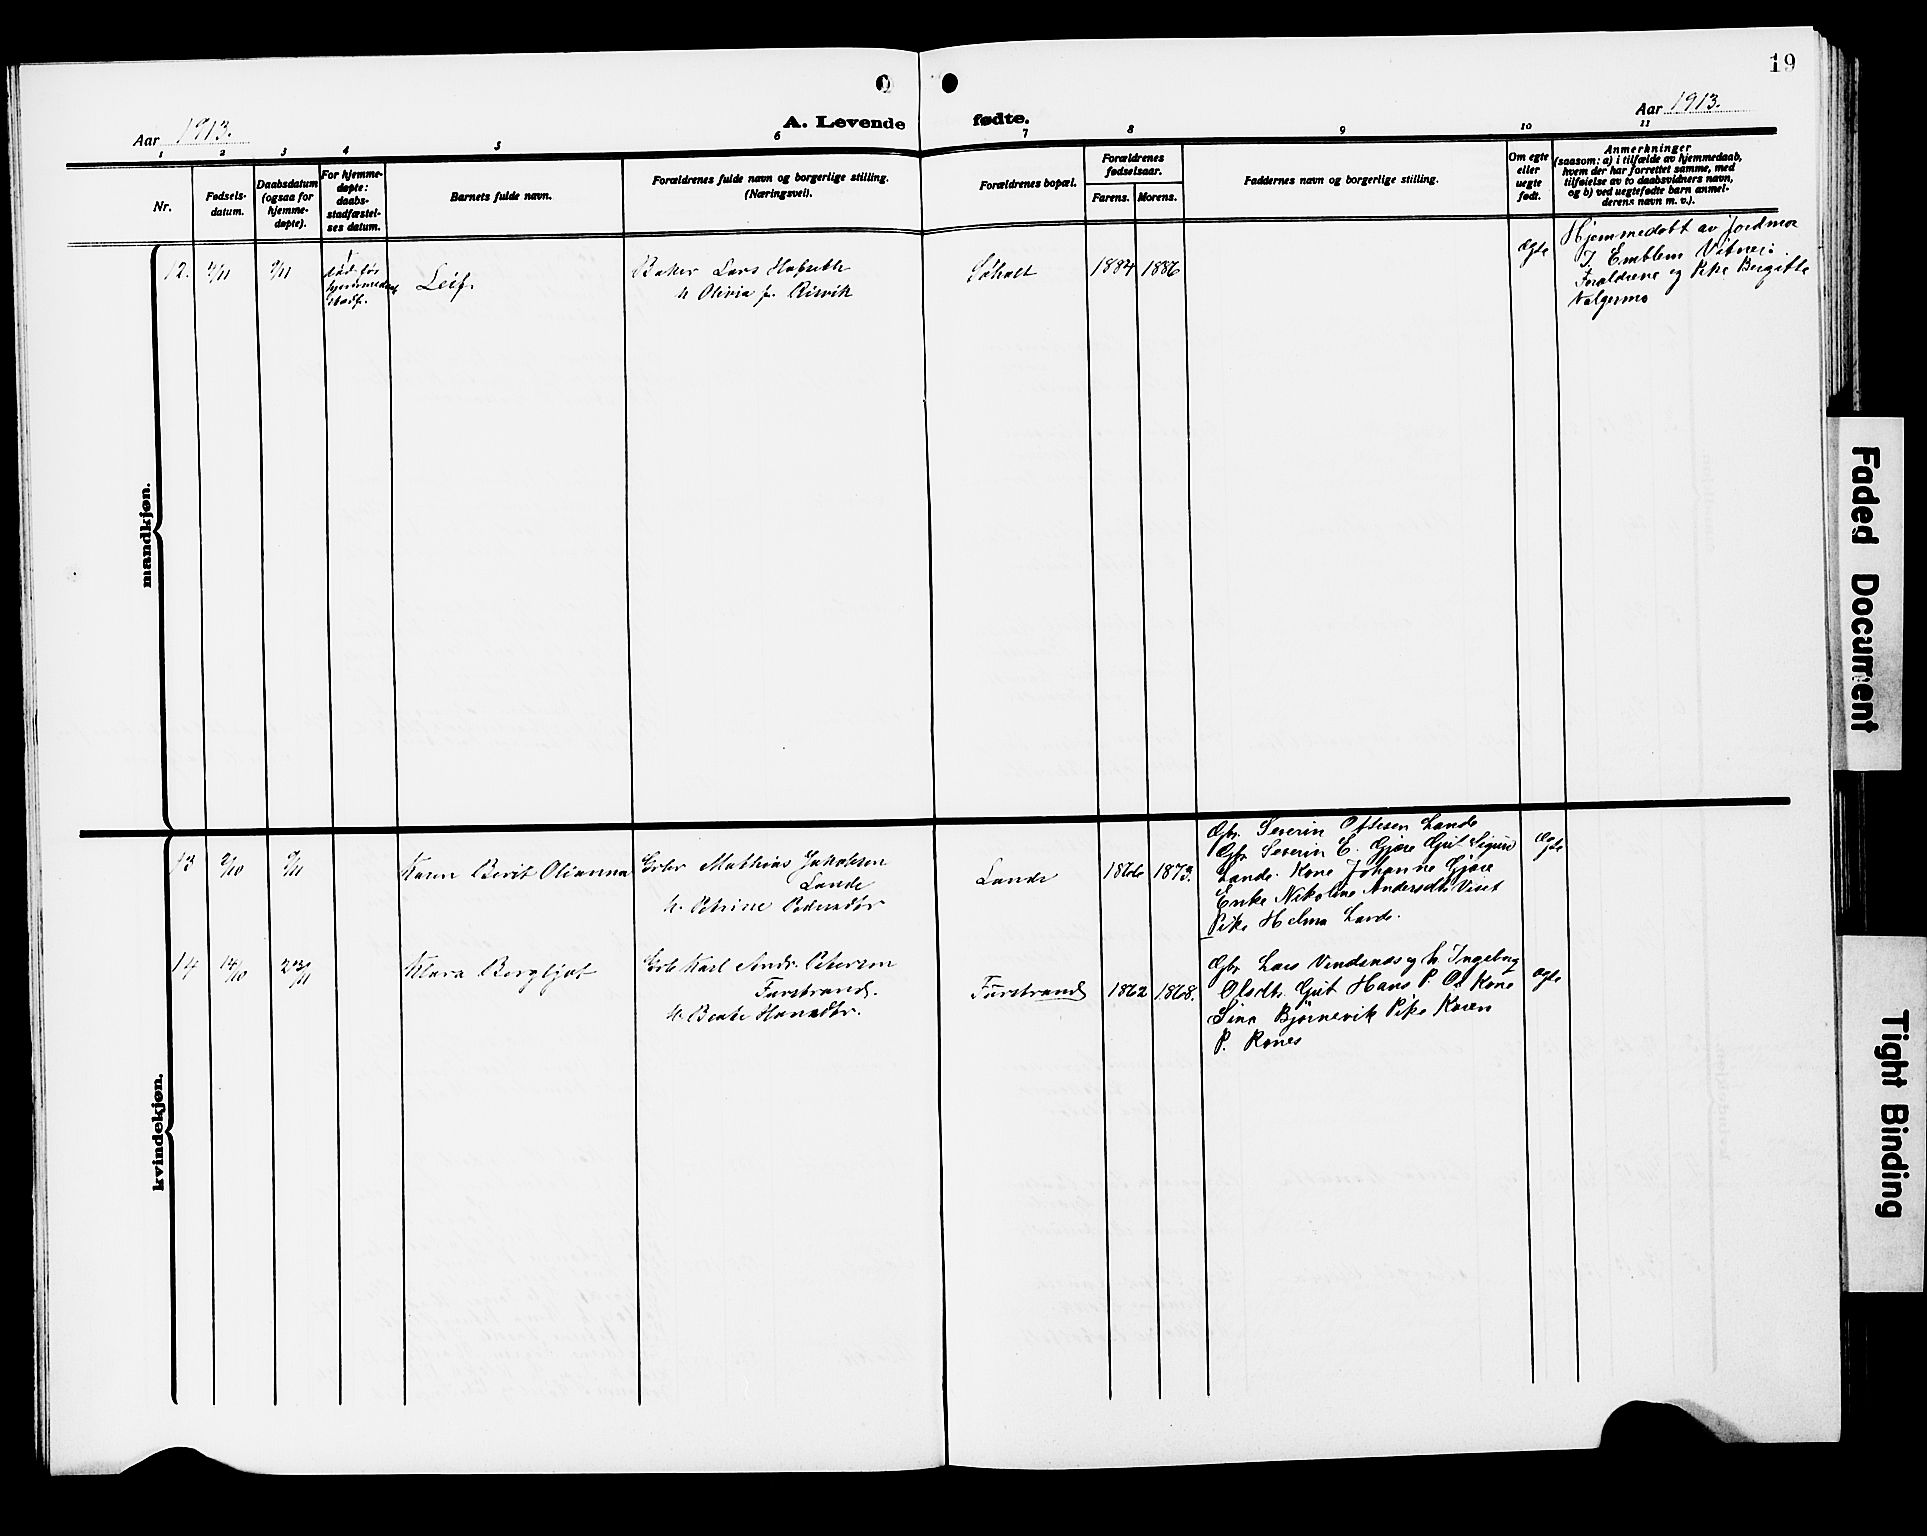 19
Aar 1913.
A. Levende
fødte.
Aar 1913.
1
2
3
4
5
6
7
8
9
10
11
Nr.
Fødsels-
datum.
Daabsdatum
(ogsaa for
hjemme-
døpte).
For hjemme-
døpte:
daabs-
stadfæstel-
ses datum.
Barnets fulde navn.
Forældrenes fulde navn og borgerlige stilling.
(Næringsvei).
Forældrenes bopæl.
Forældrenes
fødselsaar.
Farens.
Morens.
Faddernes navn og borgerlige stilling.
Om egte
eller
uegte
født.
Anmerkninger
(saasom: a) i tilfælde av hjemmedaab,
hvem der har forrettet samme, med
tilføielse av to daabsvidners navn,
og b) ved uegtefødte barn anmel-
derens navn m. v.).
mandkjøn.
12.
død før
hjemmedaab
stadf.
Leif.
Baker Lars Hofseth
h. Olivia f. Risvik
Søholt
1884
1886
Ægte
Hjemmedøbt av Jordmor
J. Emblem Vitner:
Forældrene og Pike Bergitte
Valgermo
kvindekjøn.
13
2/10
9/11
Karen Berit Olianna
Gbr Mathias Jakobsen
Lande
h. Petrine Pedersdtr
Lande
1866
1873.
Gbr. Severin Ottesen Lande
Gbr Severin E. Gjære Gut Sigurd
Lande. Kone Johanne Gjære
Enke Nikoline Andersdtr Viset
Pike Helma Lande.
Ægte
14
14/10
23/11
Klara Bergljot
Gbr Karl Andr. Petersen
Furstrand.
h. Beate Hansdtr.
Furstrand
1862
1868.
Gbr Lars Vindenes og h. Ingeborg
Olsdtr. Gut Hans P. Kone
Sina Bjørnevik Pike Karen
P. Rones
ægte
Faded Document
Tight Binding